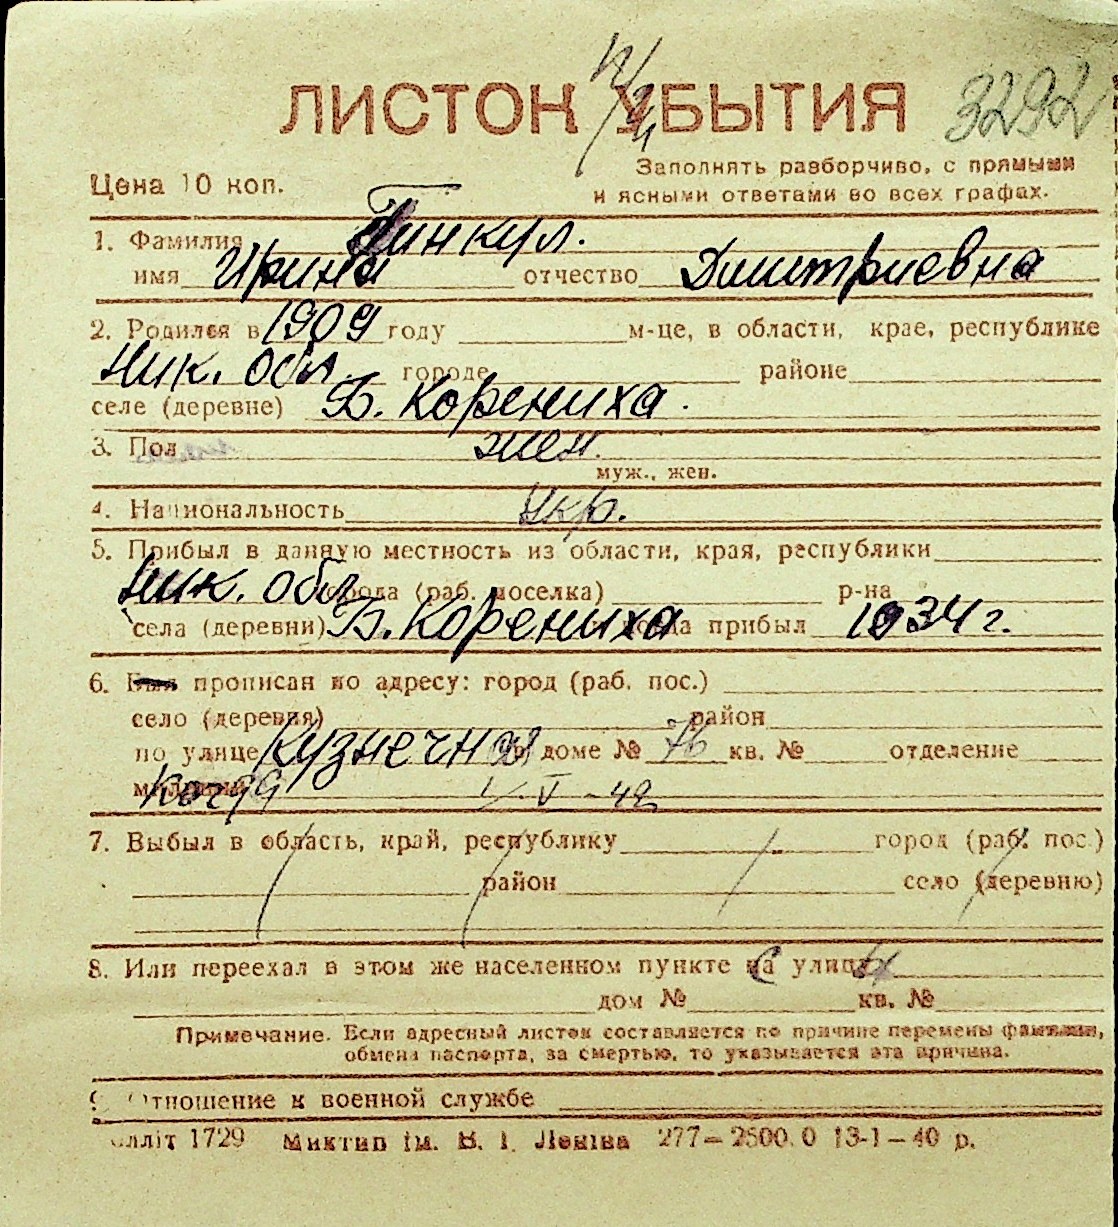 ЛИСТОК УБЫТИЯ 3292
Цена 10 коп.
Заполнять разборчиво, с прямыми
и ясными ответами во всех графах.
1. Фамилия Гинкул.
имя Ирина отчество Дмитриевна
2. Родился в 1909 году м-це, в области, крае, республике
Ник. обл городе районе
селе (деревне) Б. Корениха.
3. Пол жен.
муж., жен.
4. Национальность Укр.
5. Прибыл в данную местность из области, края, республики
Ник. обл города (раб. поселка) р-на
села (деревни) Б. Корениха когда прибыл 1934 г.
6. Был прописан по адресу: город (раб. пос.)
село (деревня) район
по улице Кузнечная доме № 76 кв. № отделение
милиции Когда V-42
7. Выбыл в область, край, республику город (раб. пос.)
район село (деревню)
8. Или переехал в этом же населенном пункте на улицу
дом № кв. №
Примечание. Если адресный листок составляется по причине перемены фамилии,
обмена паспорта, за смертью, то указывается эта причина.
9. Отношение к военной службе
1729 Миктип ім. В. І. Леніна 277—2500.0 13-1—40 р.